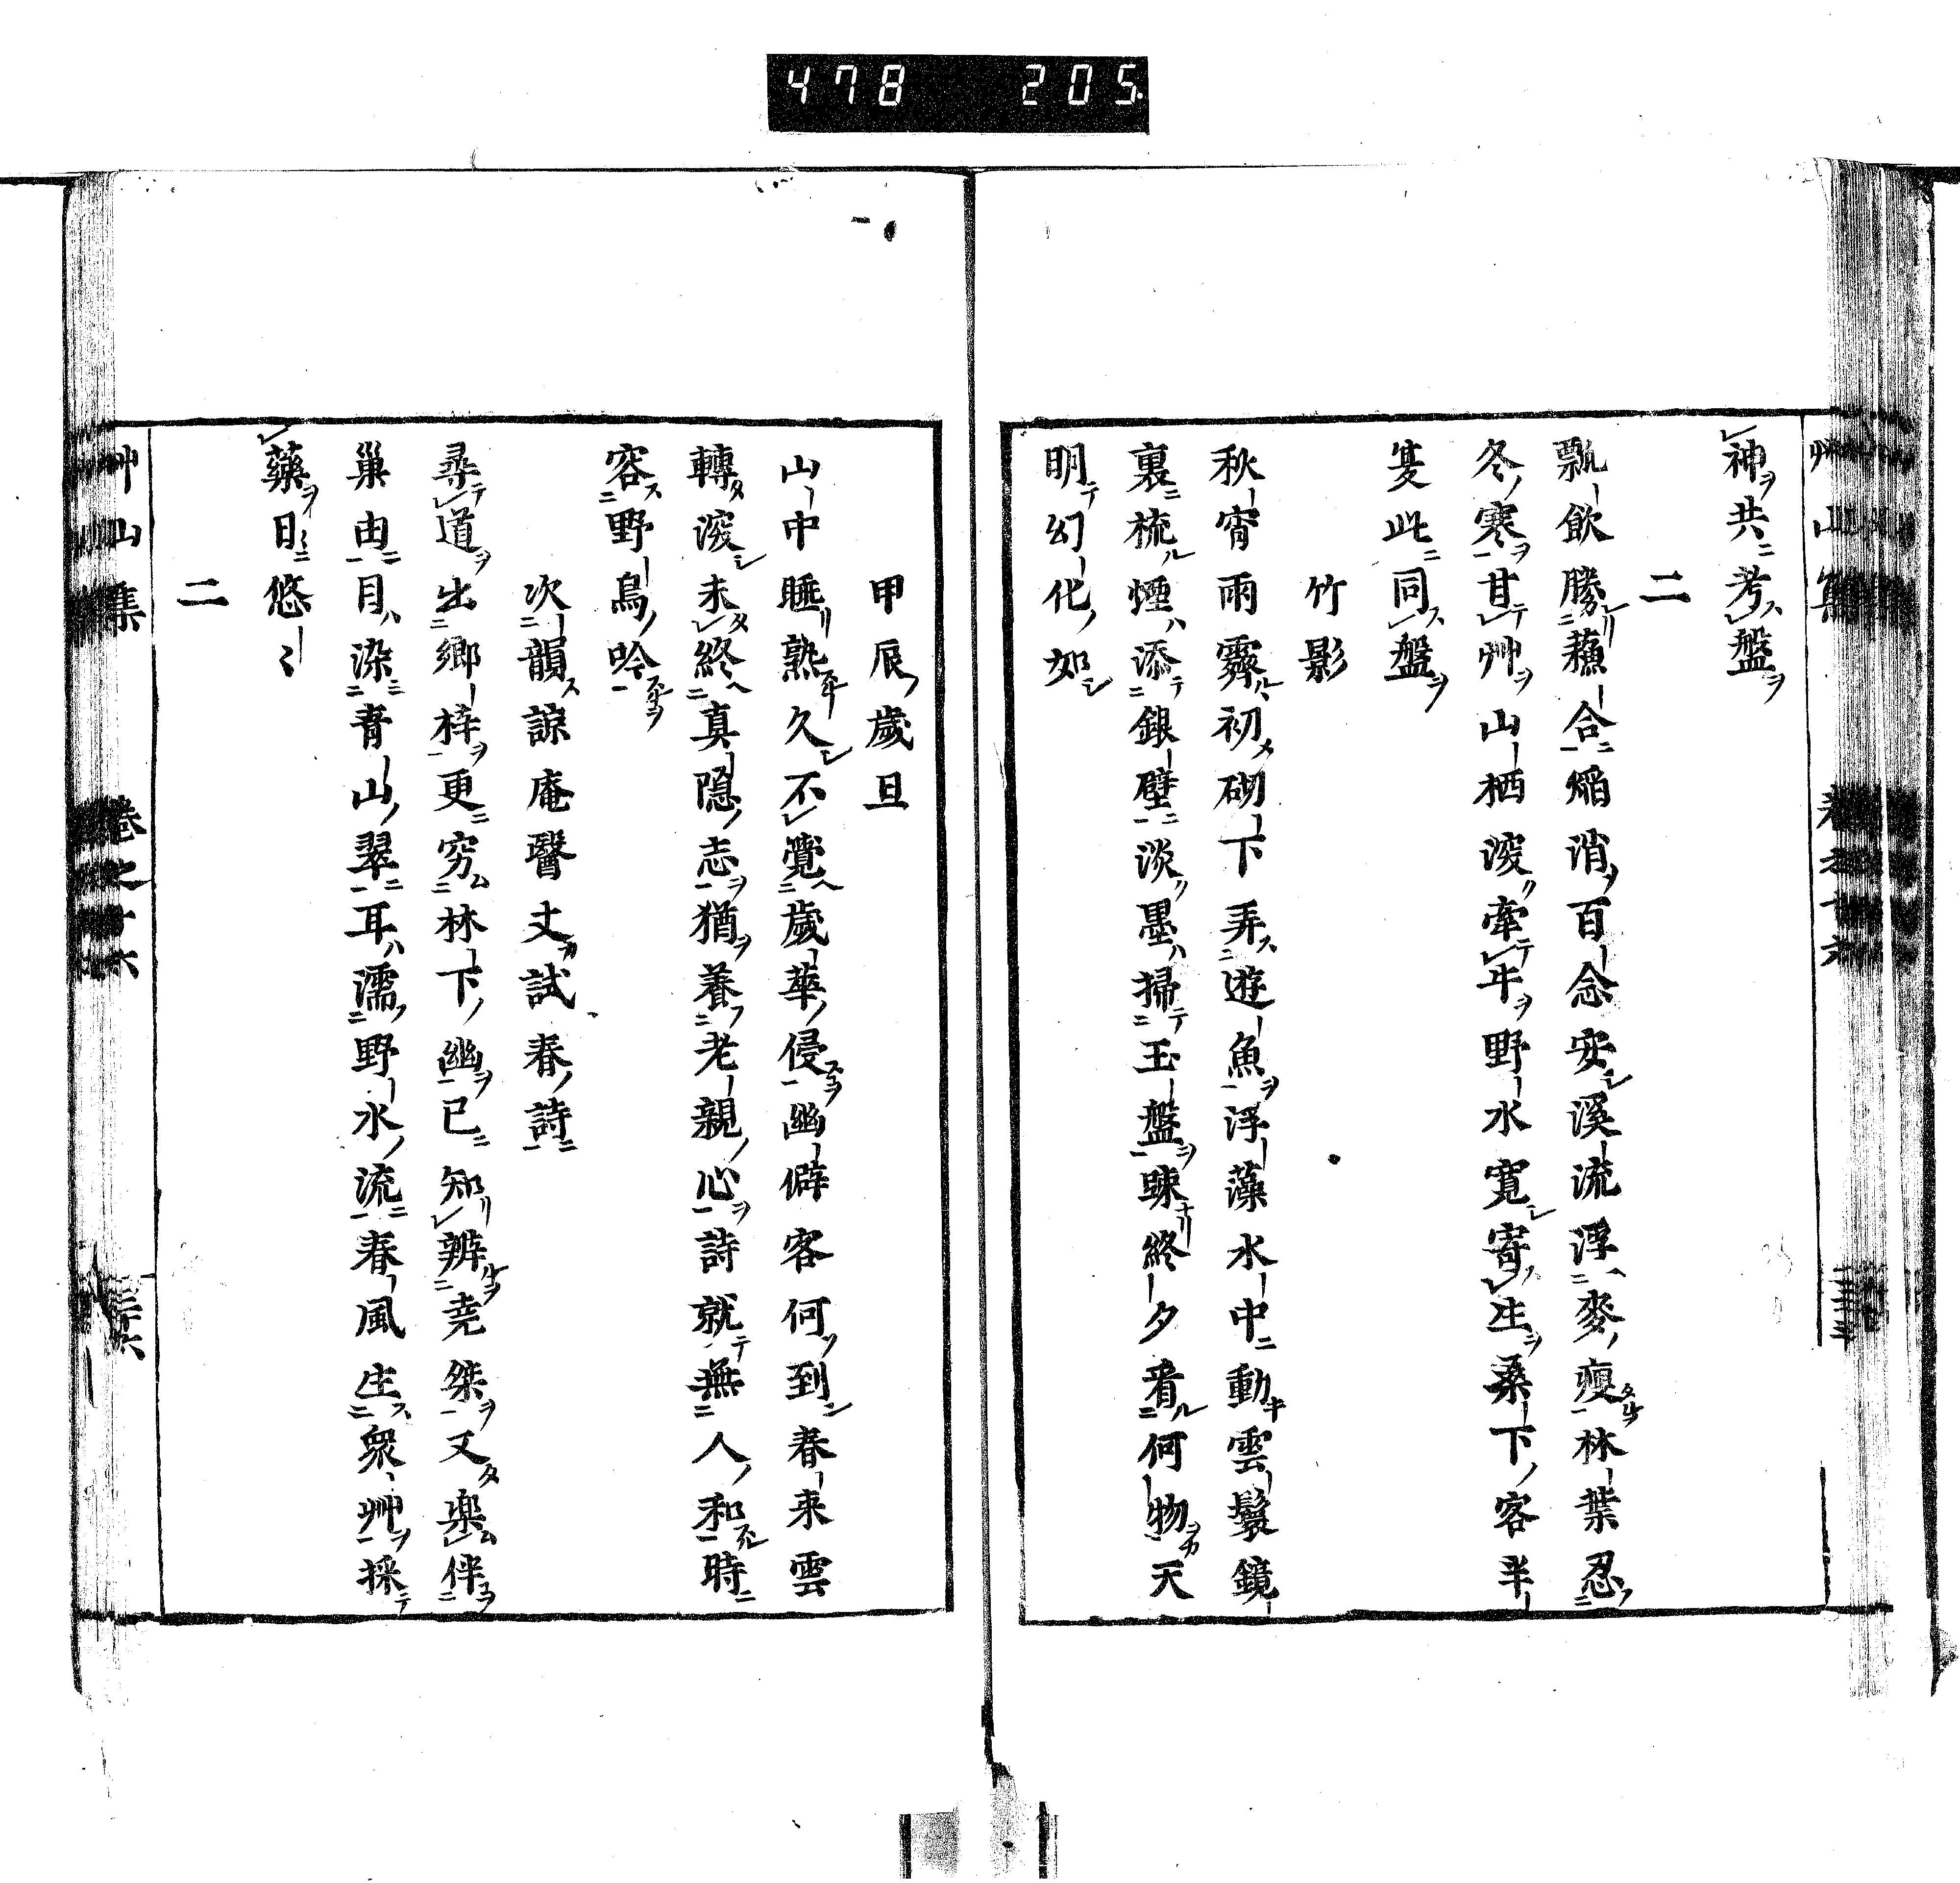 478 205
艸山集 卷之十六
神共考盤
二
瓢飲勝蘓合焰消百念安溪流浮麥瘦林葉忍
冬寒甘艸山栖深牽牛野水寬寄生桑下客半
夏此同盤
竹影
秋宵雨霽初砌下弄遊魚浮藻水中動雲鬟鏡
裏梳煙添銀壁淡墨掃玉盤疎終夕看何物天
明幻化如
甲辰歲旦
山中睡熟久不覺歲華侵幽僻客何到春来雲
轉深未終真隱志猶養老親心詩就無人和時
容野鳥吟
次韻諒庵醫丈試春詩
尋道出鄉梓更穷林下幽已知辨堯桀又樂伴
巢由目染青山翠耳濡野水流春風生衆艸採
藥日悠〻
二
艸山集 卷之十六 三十六